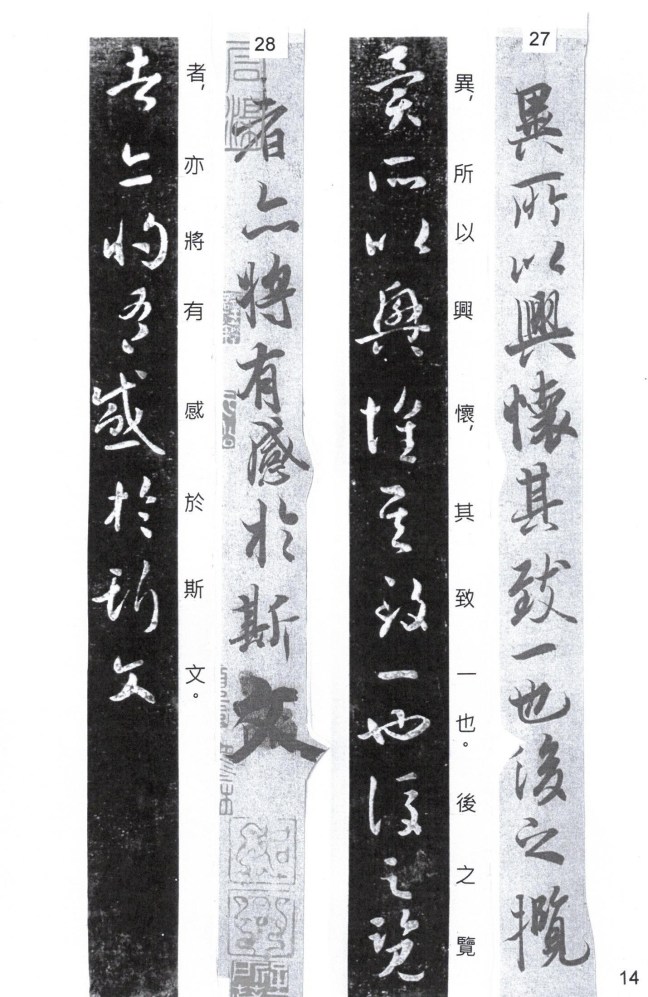 27
異所以興懷其致一也後之攬
異，所以興懷，其致一也。後之覽
異所以興懷其致一也後之覽
28
者亦將有感於斯文
者，亦將有感於斯文。
者亦將有感於斯文
14